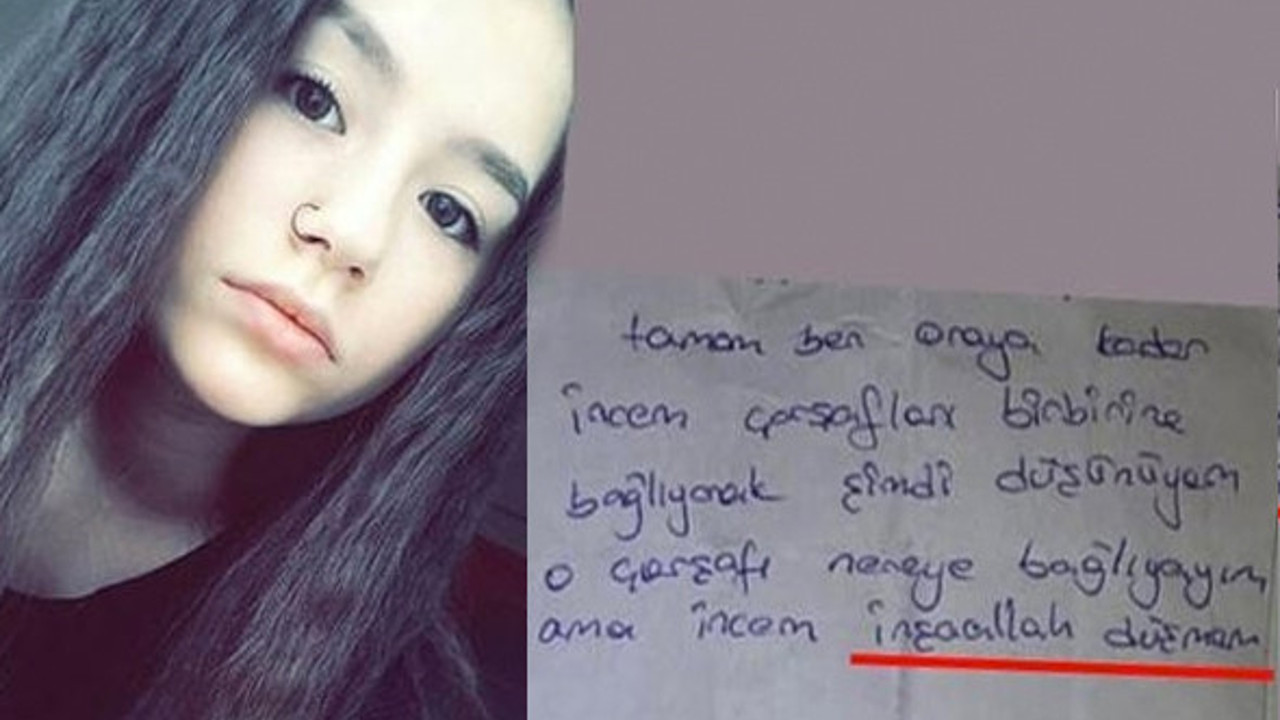 tamam ben oraya kadar
incem çarşafları birbirine
bağlıyarak şimdi düşünüyem
o çarşafı nereye bağlıyayım
ama incem inşaallah düşmem